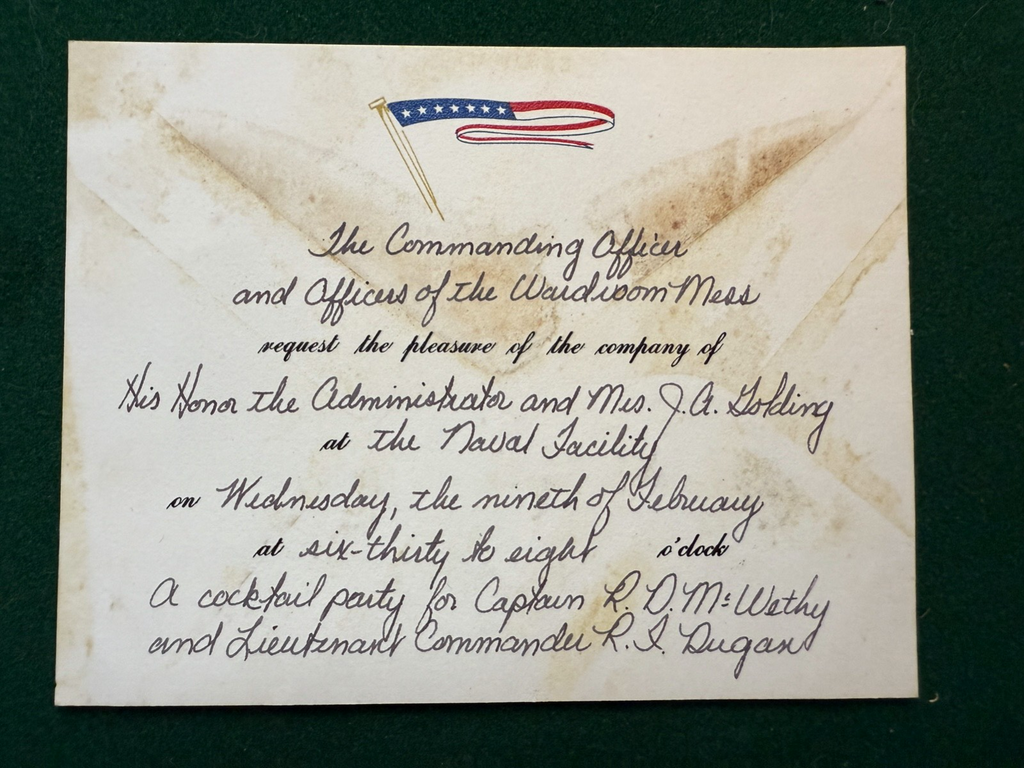 The Commanding Officer
and Officers of the Wardroom Mess
request the pleasure of the company of
His Honor the Administrator and Mrs. J.A. Golding
at the Naval Facility
on Wednesday, the nineth of February
at six-thirty to eight o'clock
A cocktail party for Captain R. D. Mc Wethy
and Lieutenant Commander R. I. Dugan